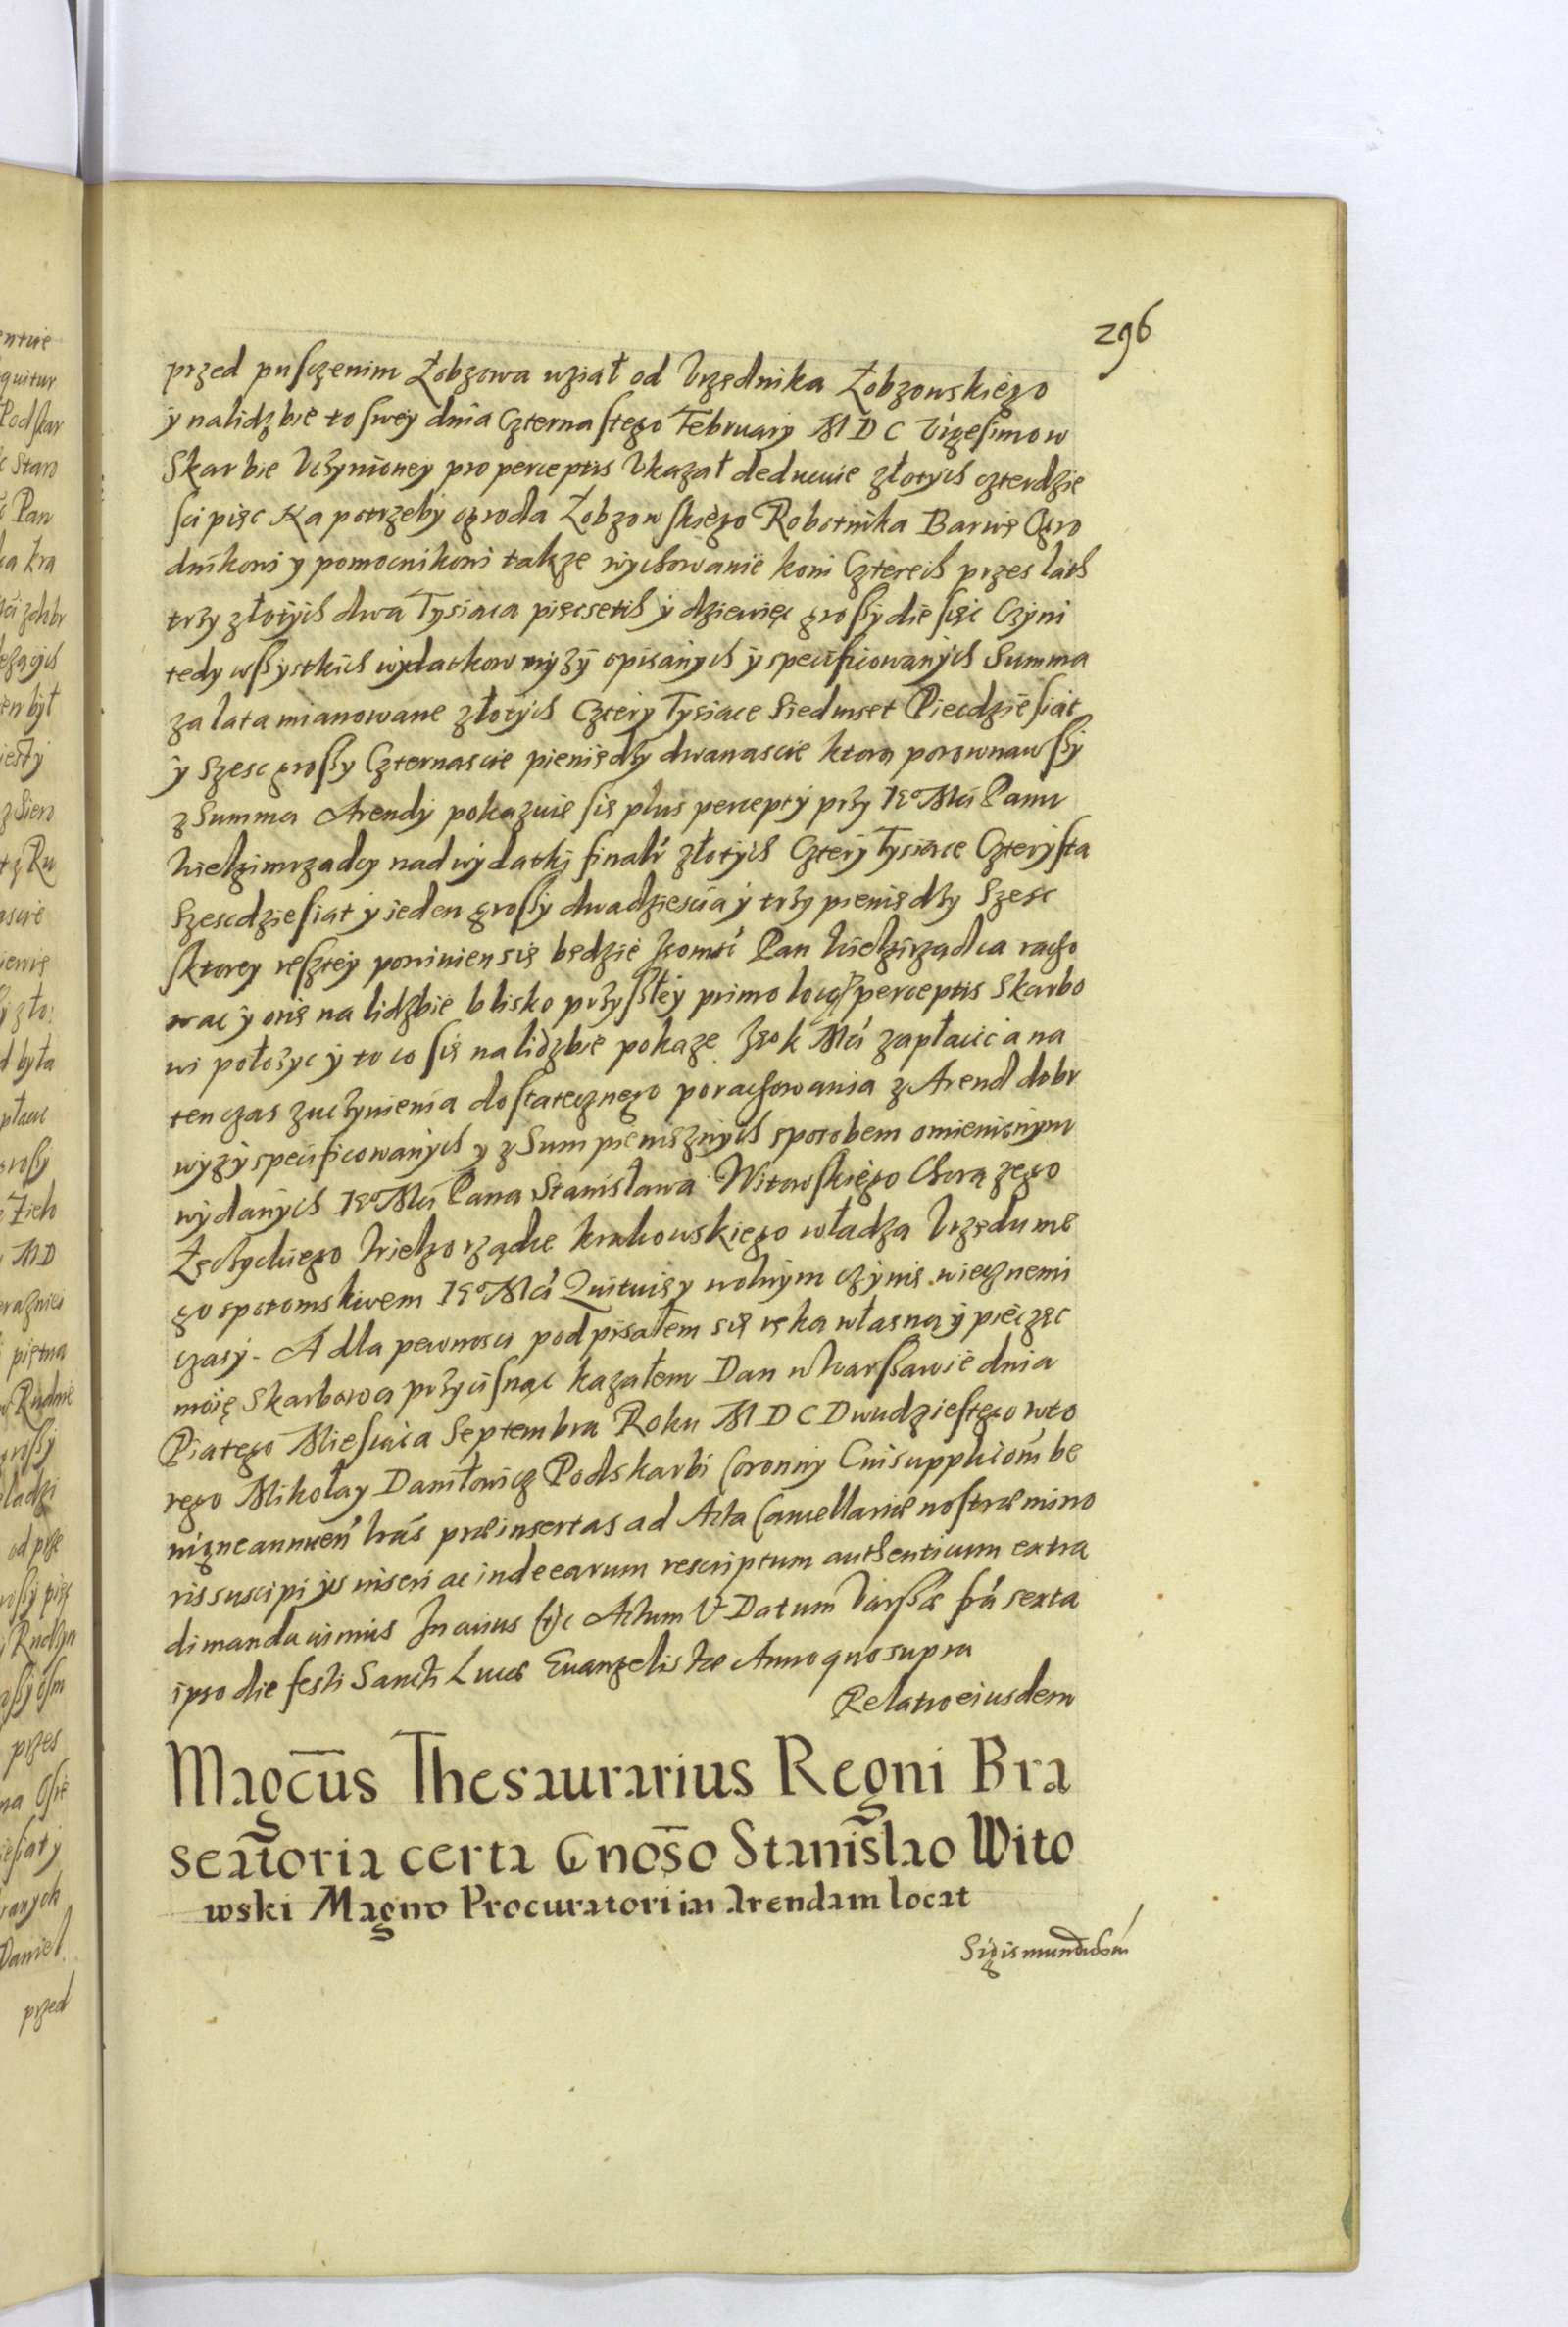 296
przed pusczenim Łobzowa uział od Vrzędnika Łobzowskiego
y nalidzbie to swey dnia Czternastego February M D C Vigesimo w
Skarbie Vczynioney pro perceptis Vkazał deducuie złotych czterdzie
sci pięc Na potrzeby ogroda Łobzowskiego Robotnika Barwę Ogro
dnikowi y pomocnikowi takze wychowanie koni Czterech przes lath
trzy złotych dwa Tysiaca pięcseth y dziewięc groszy diesięc Czyni
tedy wszystkich wydatkow wyzy opisanych y specificowanych Summa
za lata mianowane złotych Cztery Tysiace Siedmset Piecdziesiat
y Szesc groszy Czternascie pieniędzy dwanascie ktorą porownawszy
z Summa Arendy pokazuie się plus percepty przy Je° Mći Panu
Wielgimrzadcy nad wydatki finalr złotych Cztery Tysiace Czterysta
Szescdziesiat y ieden groszy dwadziescia y trzy pieniędzy Szesc
sktorey reszty powinien się będzie Jeomść Pan Wielgirządca racho
wac y onę na lidzbie blisko przyszłey primo loco perceptis Skarbo
wi połozyc y to co się na lidzbie pokaze Je°k Mći zapłacic a na
ten czas zuczynienia dostatecznego porachowania z Arend dobr
wyzy specificowanych y z Sum pieniężnych sposobem omienionym
wydanych Je° Mći Pana Stanisława Witowskiego Chorązego
Łęczyckiego Wielgorządcę krakowskiego władza Vrzędu me
go spotomskiwem Je° Mći Quituię y wolnym czynię wiecznemi
czasy. A dla pewnosci podpisałem się ręka własna y pieczęc
moię Skarbowa przycisnąc kazałem Dan w Warszawie dnia
Piatego Miesiaca Septembra Roku M D C Dwudziestego wto
rego Mikołay Daniłowicz Podskarbi Coronny Cui supplicoñi be
nigne annueñ lrãs præinsertas ad Acta Cancellariæ nostræ mino
ris suscipi ijs inseri ac inde earum rescriptum authenticum extra
di mandauimus In cuius &c Actum & Datum Varss&æ fr̃a sexta
ipso die festi Sancti Lucæ Euangelistæ Anno quo supra
Relatio eiusdem
Magcus Thesaurarius Regni Bra
seatoria certa Gnoso Stanislao Wito
wski Magno Procuratori in Arendam locat
Sigismundus